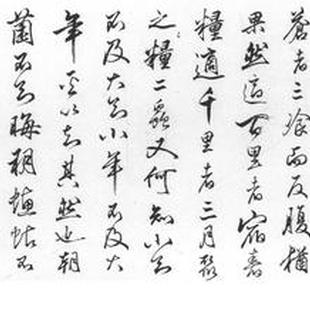 蒼者三飡而反腹猶
果然適百里者宿舂
糧適千里者三月聚
之糧二蟲又何知小知
不及大知小年不及大
年奚以知其然也朝
菌不知晦朔蟪蛄不